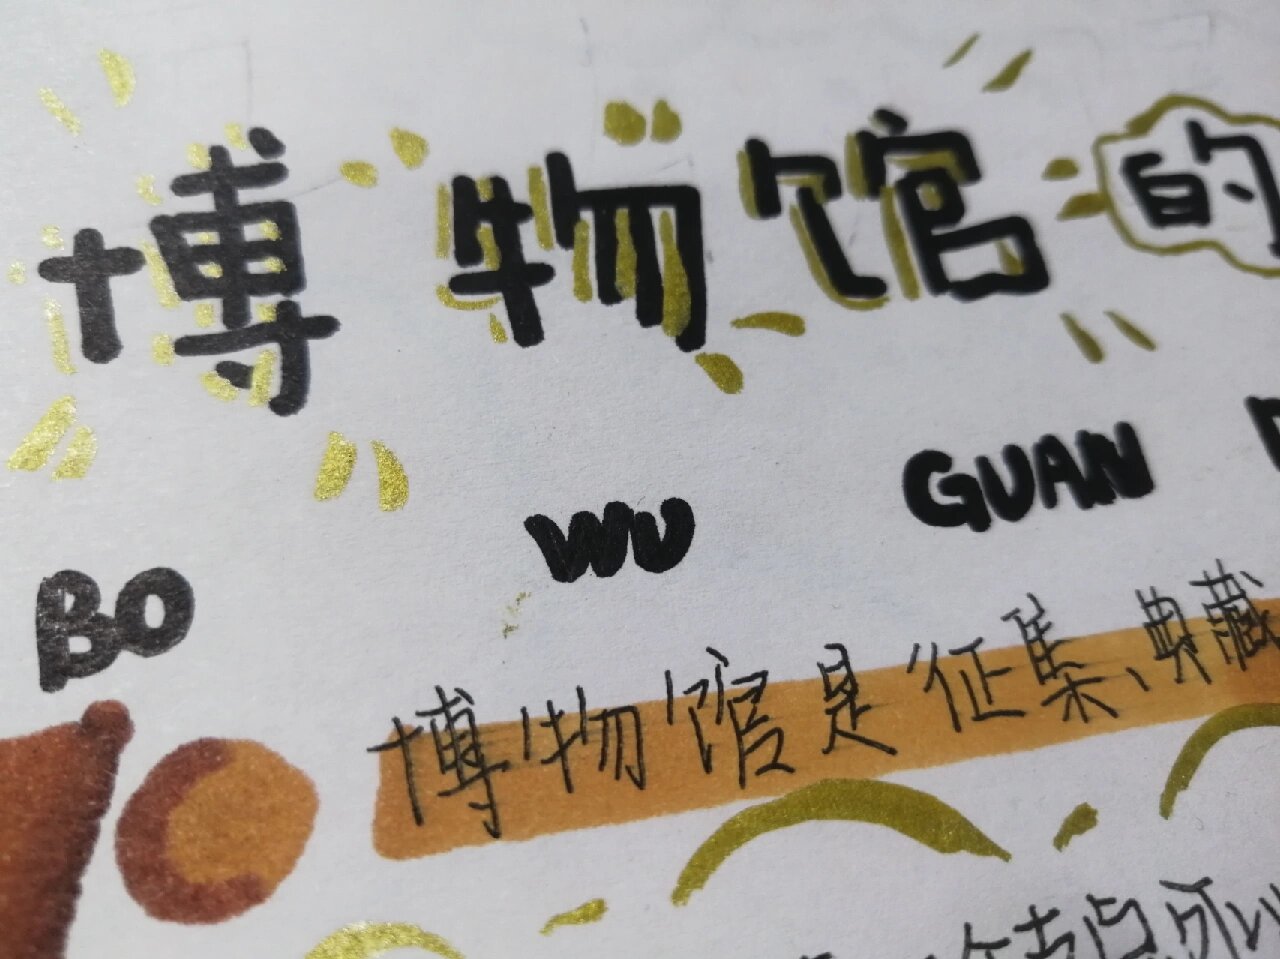 博物馆的
BO WU GUAN
博物馆是征集、典藏
点可以